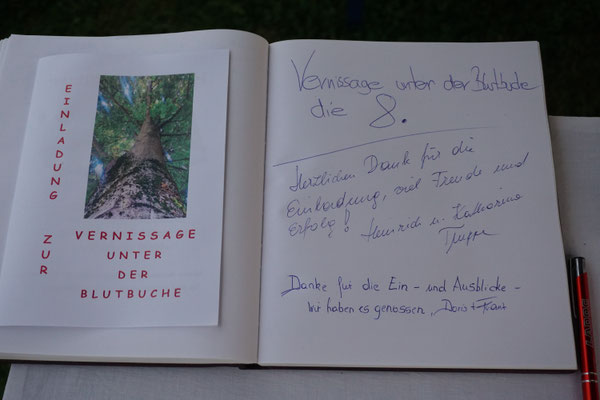 EINLADUNG
ZUR
VERNISSAGE
UNTER
DER
BLUTBUCHE
Vernissage unter der Blutbuche
die 8.
Herzlichen Dank für die
Einladung, viel Freude und
Erfolg! Heinrich u. Katharina
Danke für die Ein- und Ausblicke -
wir haben es genossen, Doris +